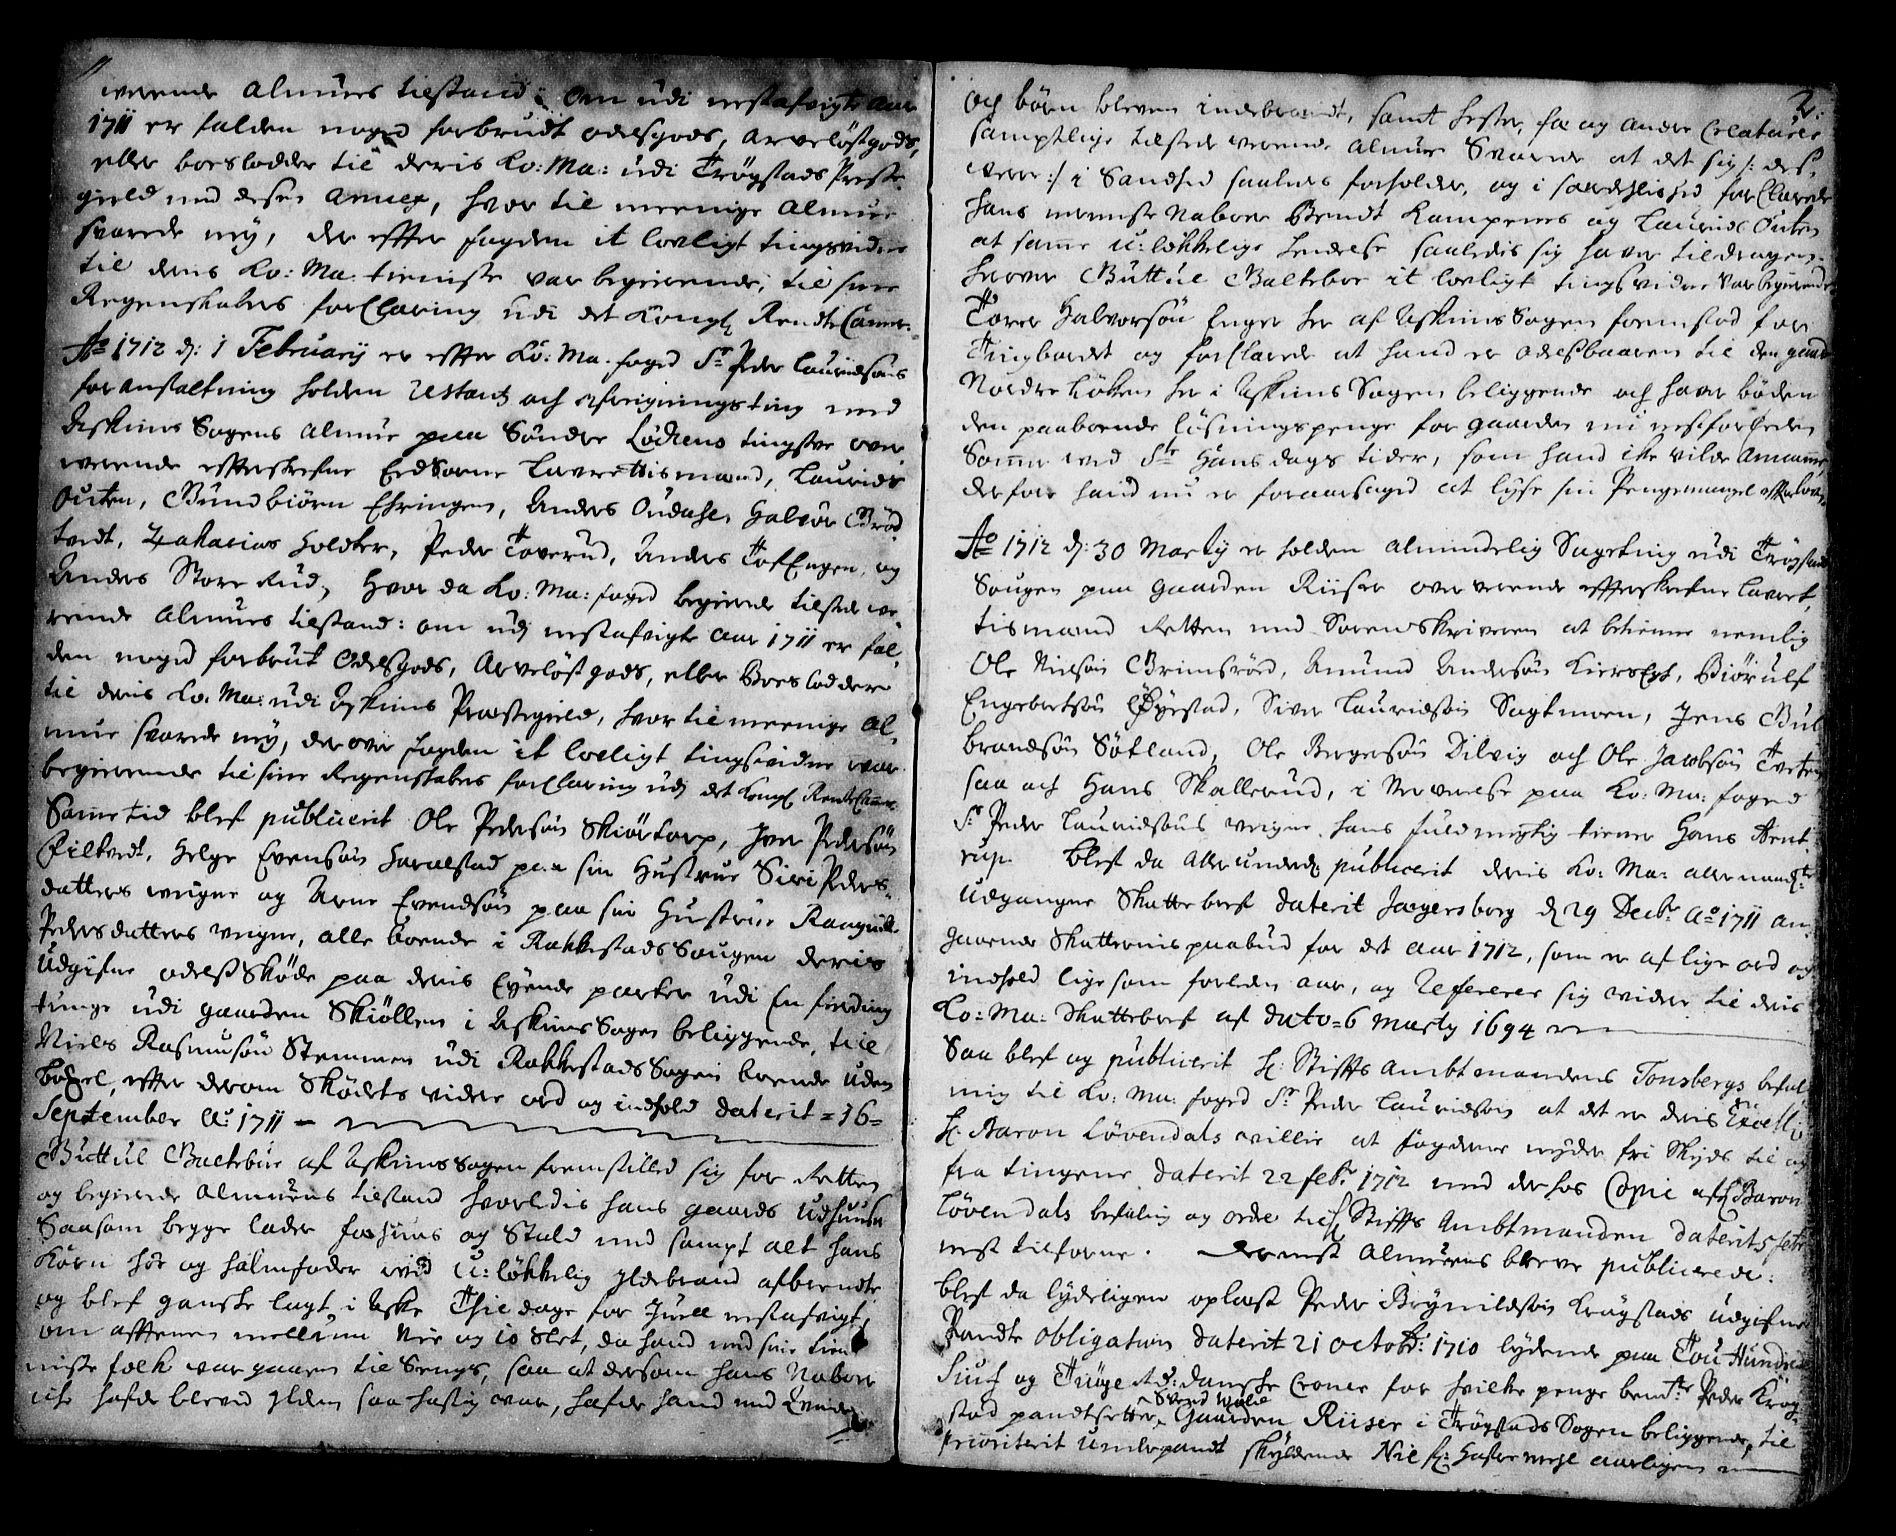 werende Almues tilstand: Om udi nestafvigte Aar
1711 er falden noged forbrudt odelsgods, Arveløst gods,
eller boeslodder til deris Ko: Ma: udi Trøgstads Preste-
gield med deses Annex, hvor til meenige Almue
svarede ney, der effter fogden it lovligt tingsvidne
til deris Ko: Ma: tieniste var begierende, til sine
Regenskabers forClaring udi det Kongl Rendte Camer.
Ao 1712 d: 1 February er effter Ko: Ma: foged Sr Peder Lauridsøns
foranstaltning holden Restantz och afreigningsting med
Askims Sogens Almue paa Søndre Løchens tingstue over
werende effterskrefne Eedsorne Laurettismænd, Laurids
Outen, Gundbiørn Ehringen, Anders Oudahl, Halvor Brød
tvedt, Zakarias Holdter, Peder Toverud, Anders TofEngen, og
Anders Store Rud, Hvor da Ko: Ma: foged begierede tilstede we-
rende Almues tilstand: om udj nestafvigte Aar 1711 er fal-
den noged forbrut Odelsgods, Arveløst gods, eller Boeslodder
til deris Ko: Ma: udi Askims Præstegield, hvor til meenige Al-
mue svarede ney, der over fogden it lovligt tingsvidne war
begierende til sine Regenskabers forClaring udj det Kongl Rente Camer.
Same tid blef publicerit Ole Pedersøn Skiørtorp, Iver Pedersøn
Filtvedt, Helge Evensøn Haralstad paa sin Hustrue Siri Peders-
datters weigne og Arne Evendsøn paa sin Hustrue Raagnild
Pedersdatters weigne, alle boende i Rakkestads Sougen deris
Udgifne odelsSkøde paa deris Eyende parter udi En fierding
tunge udi gaarden Skiøllen i Askims Sogen beliggende, til
Niels Rasmusøn Stemmen udi Rakkestads Sogen boende uden
bøxel, effter derom Skødets videre ord og indhold daterit = 16 =
September Ao 1711 —
Guttul Baltebue af Askims Sogen fremstilled sig for Retten
og begierede Almuens tilstand hvorledis hans gaards Udhuuse
Saasom begge lader fæhuus og Stald med sampt alt hans
Korn høe og halmfoder wed U:løkkelig Ildebrand afbrendte
og blef ganske lagt i Aske Thie dage for Juell nestafvigt
om afftenen mellum Nie og 10 Slet, da hand med sine tien
niste folk var gaaen til Sengs, saa at dersom hans Naboer
iche hafde bleved Ilden saa hastig war, hafde hand med Qvinde
2.
och børn bleven indebrendt, samt hester, fæ og andre Creaturer
samptlige tilstede werende Almue Svarede at det sig /: des
verre :/ i Sandhed saaledes forholder, og i særdehlished forClarede
hans nermiste Naboer Bendt Kampenes og Laurids Outen
at same U:løkkelige hendelse saaledis sig haver tildragen.
herover Guttul Baltebue it lovligt tingsvidne var begierende
Torer Halvorsøn Enger her af Askims Sogen fremstod for
Tingbordet og forClarede at hand er odelsbaaren til den gaard
Nordre Løken her i Askims Sogen beliggende och haver bøden
den paaboende løsningspenge for gaarden nu nestforleden
Somer wed Ste Hans dags tider, som hand ike wilde Anname
derfore hand nu er foraarsaged at lyse sin Pengemangel effter loven
Ao 1712 d: 30 Marty er holden Almindelig Sageting udi Trøgstad
Sougen paa gaarden Riiser overværende effterskrefne Lavret-
tismænd Retten med Sorenskriveren at betienne nemlig
Ole Nielsøn Grimsrød, Amund Andersøn Kiersegt, Biørulf
Engebertsøn Øyestad, Siver Lauridsøn Sagtmoen, Jens Gul
brandsøn Søtland, Ole Børgersøn Dilvig och Ole Jacobsøn Tveten
saa och Hans Skallerud, i Nerverelse paa Ko: Ma: foged
Sr Peder Lauridsøns weigne, hans fuldmegtig tiener Hans Arent
rup. Blef da Allerunderd publicerit deris Ko: Ma: allernaadste
Udgangne Skattebref daterit Jægersborg d 29 Decbr Ao 1711 an-
gaaende Skatternis paabud for det Aar 1712, som er af lige ord og
indhold lige som forleden aar, og Refererer sig widere til deris
Ko: Ma: Skattebref af dato = 6 Marty 1694
Saa blef og publicerit H: Stiffts Ambtmandens Tonsbergs befal
ning til Ko: Ma: foged Sr Peder Lauridsøn at det er deris Excell:
H. Baron Løvendals willie at fogderne nyder fri Skyds til og
fra tingene, daterit 22 febr 1712 med der hos Copie af H Baron
Løvendals befaling og ordre til H Stiffts Ambtmanden daterit 5 febr
nest tilforne. dernest Almuens breve publicerede:
blef da lydeligen oplæst Peder Brynildsøn Kragstads udgifne
Pandte obligation daterit 21 octobr: 1710 lydende paa Tou Hundrede
Siuf og Tiuge Rd: danske Croner for hvilke penge bemte Peder Krag-
stad pandtsetter Svend Wolle Gaarden Riiser i Trøgstads Sogen beliggende, til
Prioriterit Underpandt skyldende Nie fl: Hafremehl aarligen